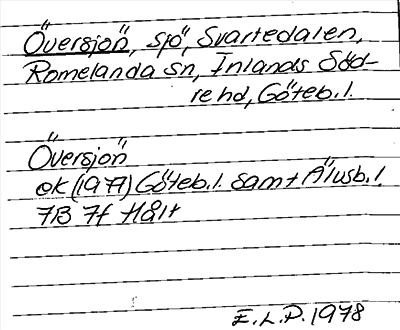 Översjön, sjö, Svartedalen,
Romelanda sn, Inlands Söd-
re hd, Göteb.l.
Översjön
ek (1977) Göteb.l. samt Älvsb.l.
7B 7f Hålt
E.L.P. 1978